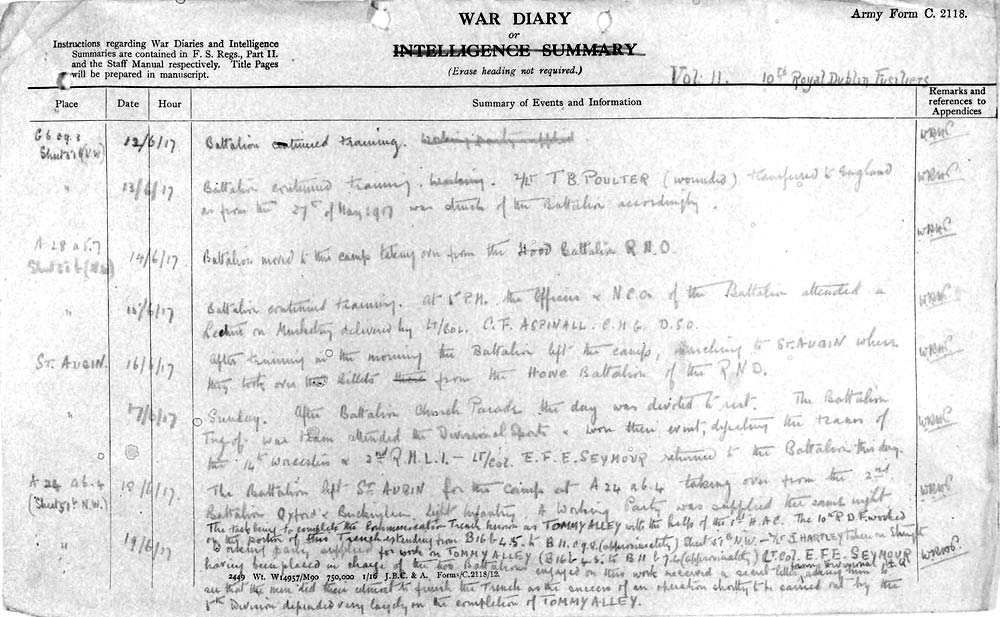 WAR DIARY
Army Form C. 2118.
or
INTELLIGENCE SUMMARY
(Erase heading not required.)
Instructions regarding War Diaries and Intelligence
Summaries are contained in F. S. Regs., Part II.
and the Staff Manual respectively. Title Pages
will be prepared in manuscript.
Vol: 11. 10th Royal Dublin Fusiliers
Place Date Hour Summary of Events and Information Remarks and
references to
Appendices
12/6/17 Battalion continued training.
13/6/17 Battalion continued training. 2/Lt T. B. POULTER (wounded) transferred to England
as from the 27th of May 1917 was struck of the Battalion accordingly.
14/6/17 Battalion moved to this camp taking over from the Hood Battalion R.N.D.
15/6/17 Battalion continued training. At 5 P.M. the Officers & N.C.Os of the Battalion attended a
Lecture on Musketry delivered by LT/COL. C. F. ASPINALL. C.M.G. D.S.O.
ST. AUBIN. 16/6/17 After training in the morning the Battalion left the camp, marching to ST. AUBIN where
they took over the billets from the HOWE Battalion of the R.N.D.
" 17/6/17 Sunday. After Battalion Church Parade the day was devoted to rest. The Battalion
Tug-of-war team attended the Divisional Sports & won their event, defeating the teams of
the 14th Worcesters & 2nd R.M.L.I. – LT/COL. E. F. E. SEYMOUR returned to the Battalion this day.
A 24 a 6.4 18/6/17. The Battalion left ST. AUBIN for the Camp at A 24 a 6.4 taking over from the 2nd
(Sheet 51b N.W.) Battalion Oxford & Buckingham light infantry. A Working Party was supplied the same night
The task being to complete the Communication Trench known as TOMMY ALLEY with the help of the 1st H.A.C. The 10th R.D.F. worked
on the portion of this Trench extending from B16 b 4.5. to B 11. c 9.8. (approximately) Sheet 51b N.W. – 2/Lt J. HARTLEY taken on Strength
" 19/6/17 Working party supplied for work on TOMMY ALLEY (B16 b 4.5. to B 11 (approximately) Lt Col. E. F. E. SEYMOUR
having been placed in charge of the two Battalions engaged on this work received a secret letter from Divisional H.Q. asking him
2449 Wt. W14957/M90 750,000 1/16 J.B.C. & A. Forms/C.2118/12.
see that the men did their utmost to finish the Trench as the success of an operation shortly to be carried out by the
Division depended very largely on the completion of TOMMY ALLEY.